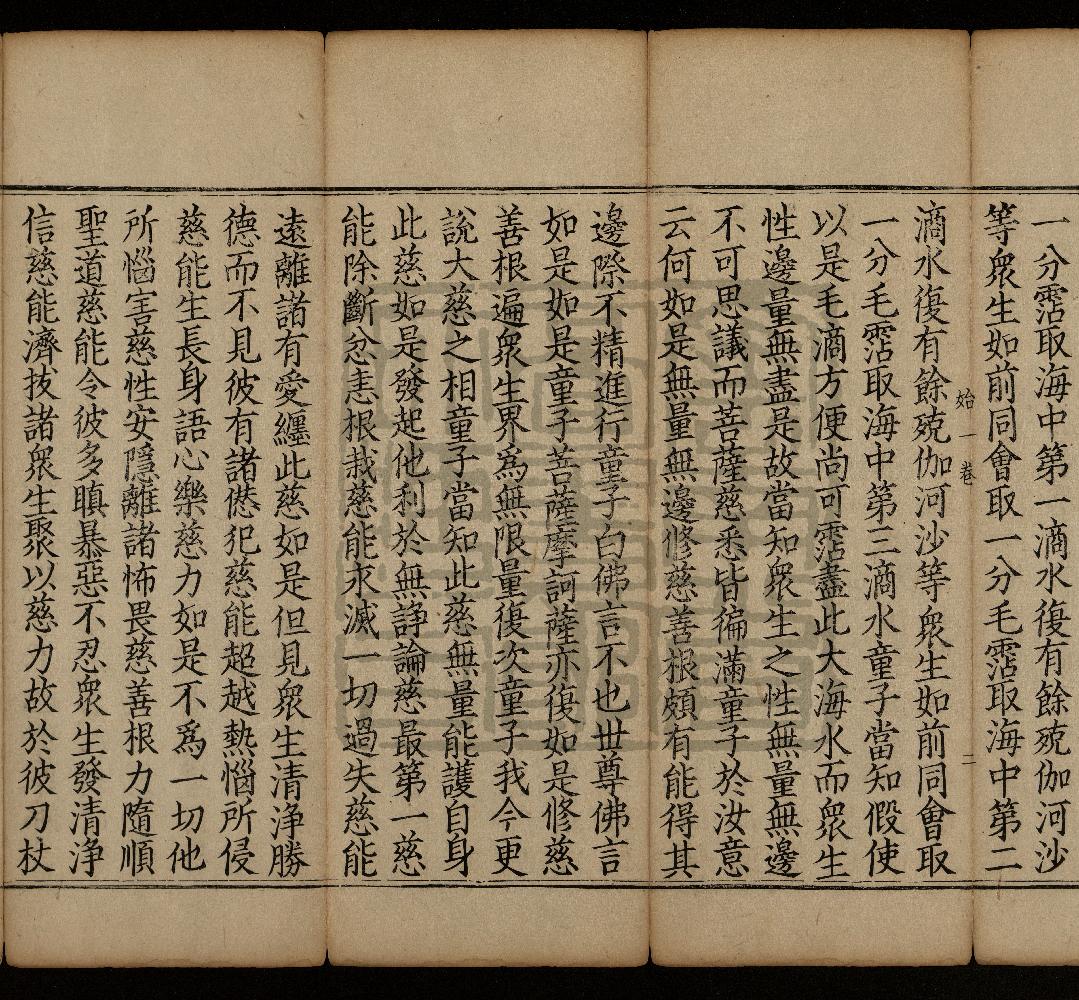 一分霑取海中第一滴水復有餘殑伽河沙
等衆生如前同會取一分毛霑取海中第二
始一卷 二
滴水復有餘殑伽河沙等衆生如前同會取
一分毛霑取海中第三滴水童子當知假使
以是毛滴方便尚可霑盡此大海水而衆生
性邊量無盡是故當知衆生之性無量無邊
不可思議而菩薩慈悉皆徧滿童子於汝意
云何如是無量無邊修慈善根頗有能得其
邊際不精進行童子白佛言不也世尊佛言
如是如是童子菩薩摩訶薩亦復如是修慈
善根遍衆生界爲無限量復次童子我今更
說大慈之相童子當知此慈無量能護自身
此慈如是發起他利於無諍論慈最第一慈
能除斷忿恚根栽慈能求滅一切過失慈能
遠離諸有愛纏此慈如是但見衆生清淨勝
德而不見彼有諸愆犯慈能超越熱惱所侵
慈能生長身語心樂慈力如是不爲一切他
所惱害慈性安隱離諸怖畏慈善根力隨順
聖道慈能令彼多瞋暴惡不忍衆生發清淨
信慈能濟拔諸衆生聚以慈力故於彼刀杖